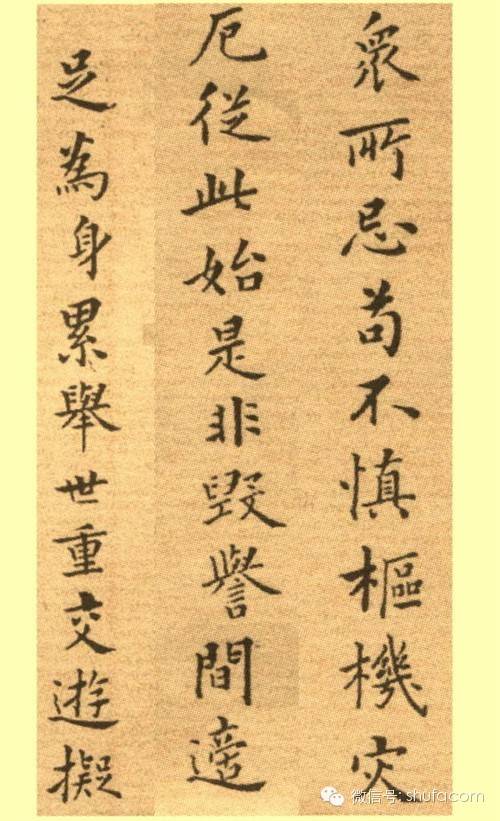 衆所忌苟不慎樞機灾
厄從此始是非毀譽間適
足為身累舉世重交遊擬
微信号: shufacom